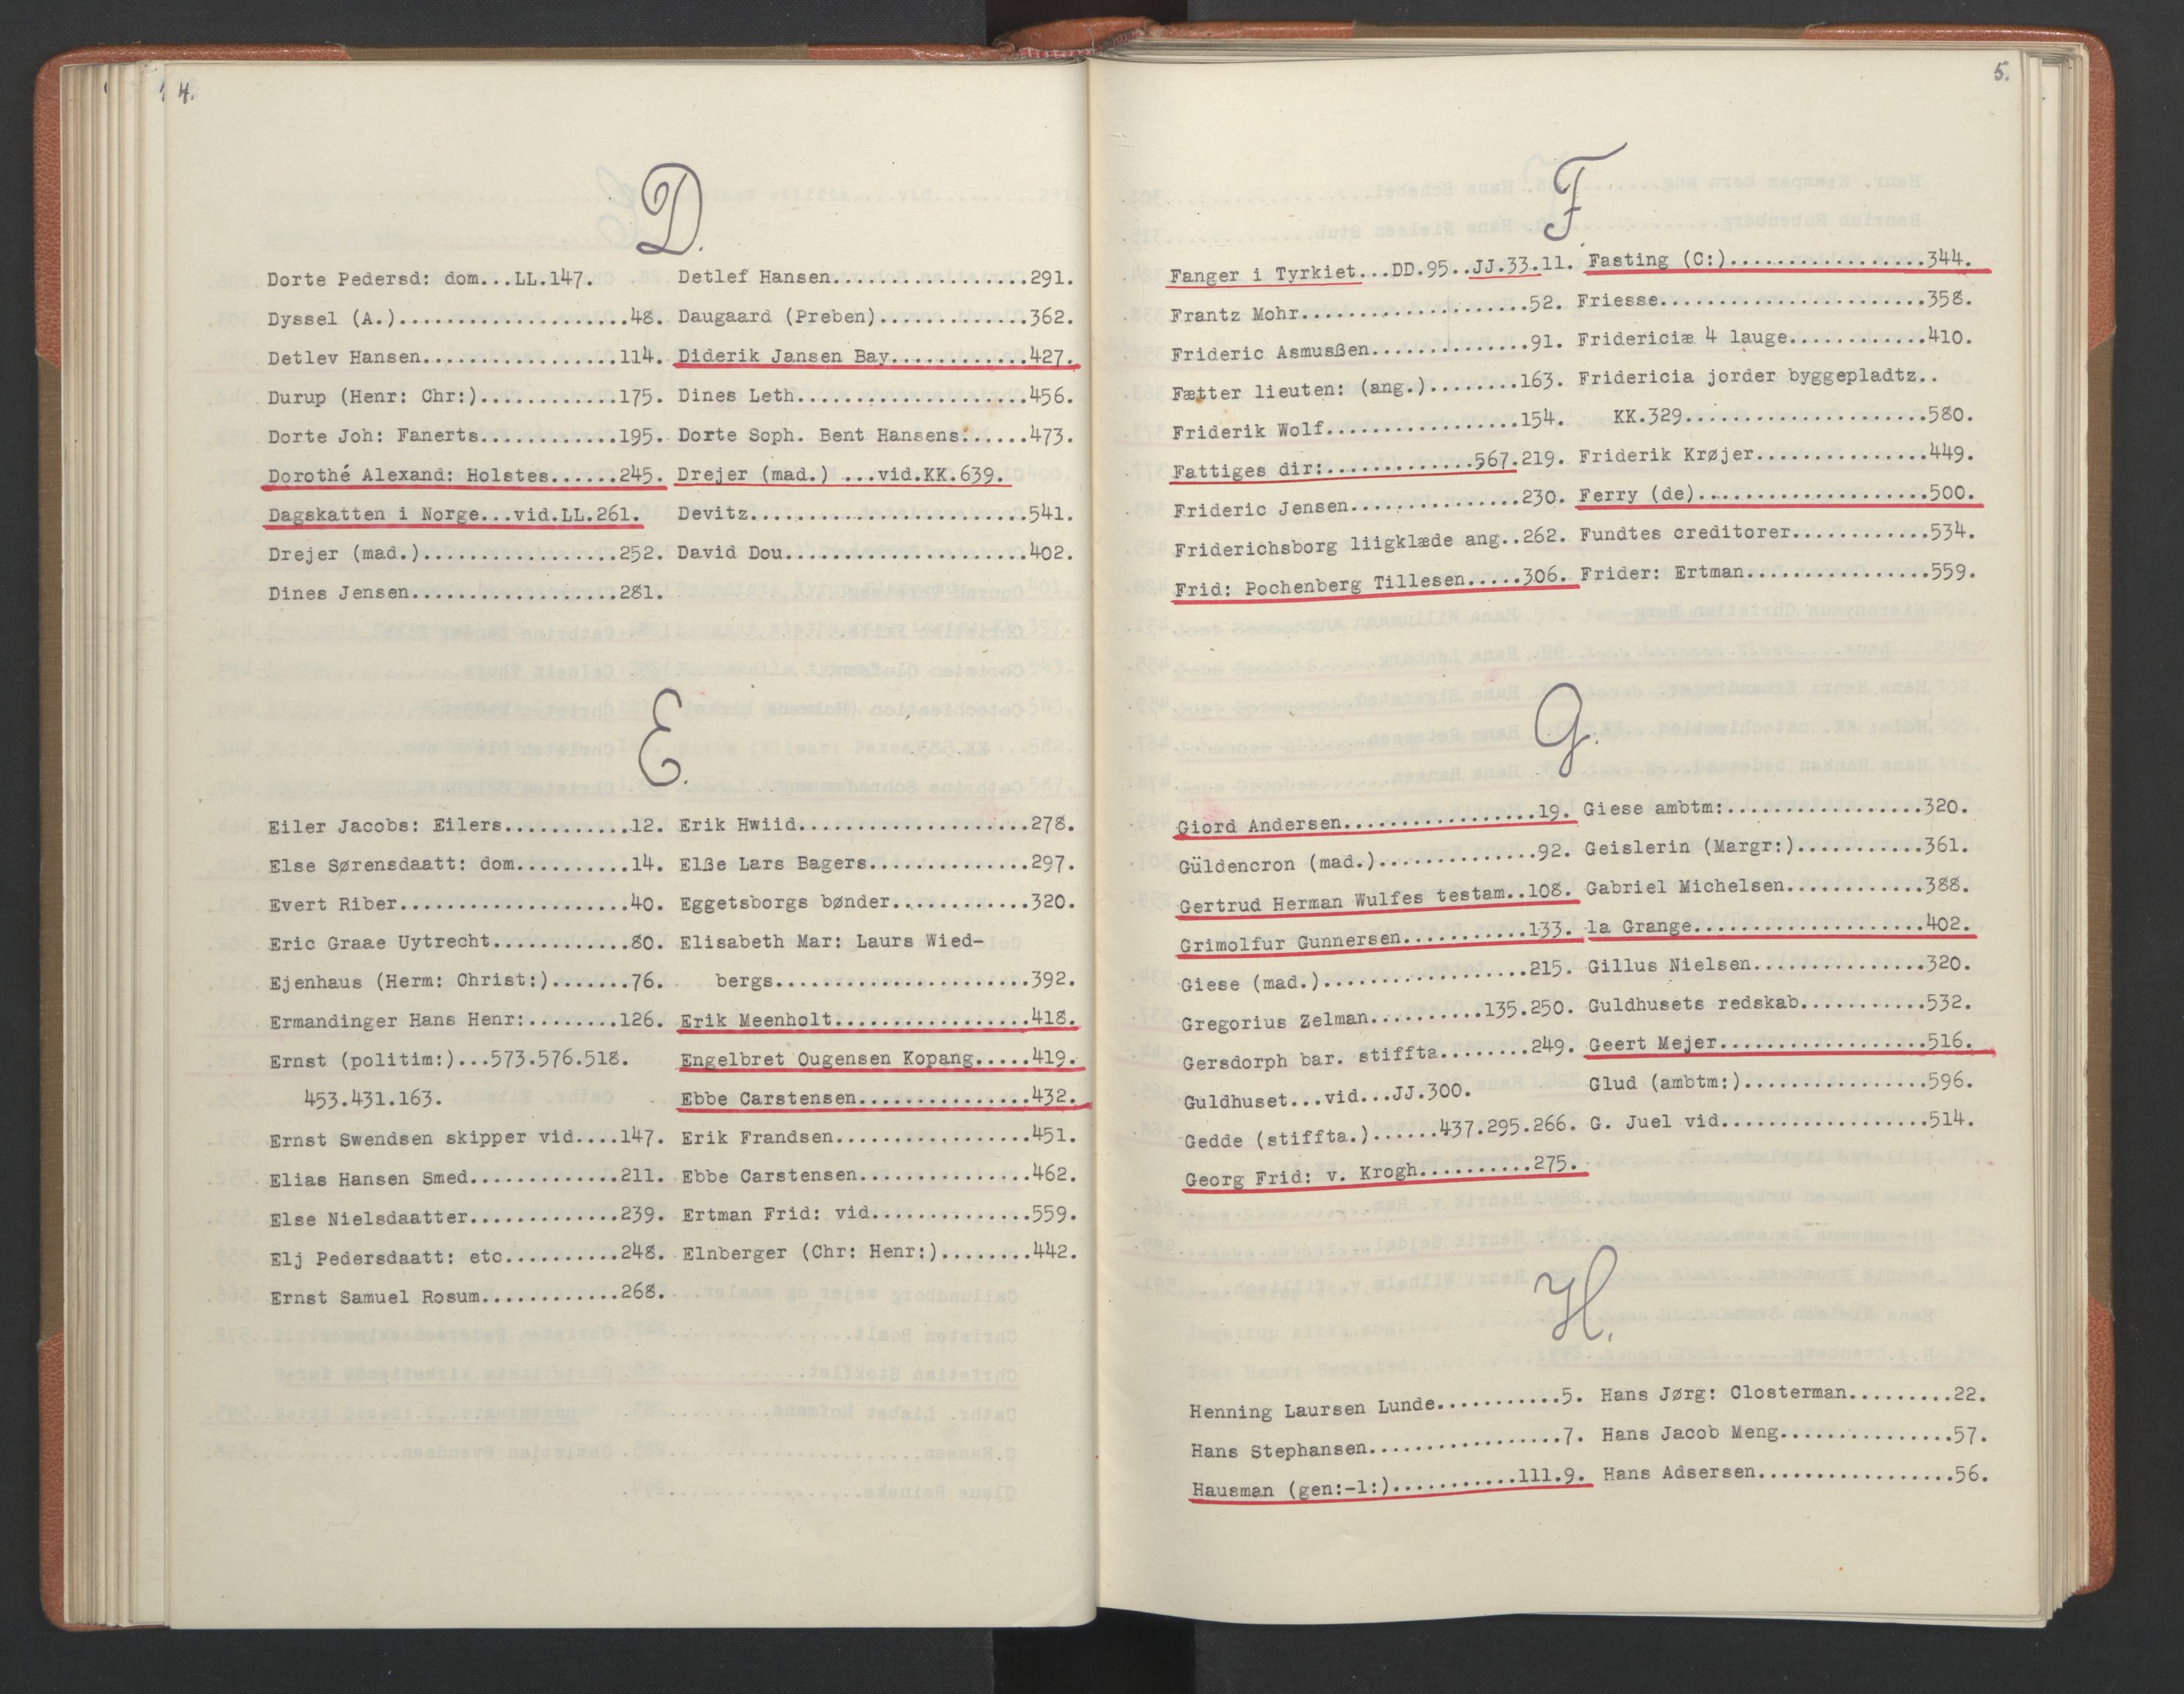 4.
D.
Dorte Pedersd: dom...LL.147.
Dyssel (A.)....................48.
Detlev Hansen.................114.
Durup (Henr: Chr:)............175.
Dorte Joh: Fanerts............195.
Dorothé Alexand: Holstes......245.
Dagskatten i Norge...vid.LL.261.
Drejer (mad.).................252.
Dines Jensen..................281.
Detlef Hansen.................291.
Daugaard (Preben).............362.
Diderik Jansen Bay............427.
Dines Leth....................456.
Dorte Soph. Bent Hansens......473.
Drejer (mad.) ...vid.KK.639.
Devitz........................541.
David Dou.....................402.
E.
Eiler Jacobs: Eilers...........12.
Else Sørensdaatt: dom..........14.
Evert Riber....................40.
Eric Graae Uytrecht............80.
Ejenhaus (Herm: Christ:).......76.
Ermandinger Hans Henr:........126.
Ernst (politim:)...573.576.518.
453.431.163.
Ernst Swendsen skipper vid....147.
Elias Hansen Smed.............211.
Else Nielsdaatter.............239.
Elj Pedersdaatt: etc..........248.
Ernst Samuel Rosum............268.
Erik Hwiid....................278.
Elße Lars Bagers..............297.
Eggetsborgs bønder............320.
Elisabeth Mar: Laurs Wied-
bergs......................392.
Erik Meenholt.................418.
Engelbret Ougensen Kopang.....419.
Ebbe Carstensen...............432.
Erik Frandsen.................451.
Ebbe Carstensen...............462.
Ertman Frid: vid..............559.
Elnberger (Chr: Henr:)........442.
5.
F.
Fanger i Tyrkiet...DD.95..JJ.33.11.
Frantz Mohr....................52.
Frideric Asmusßen..............91.
Fætter lieuten: (ang.)........163.
Friderik Wolf.................154.
Fattiges dir:.............567.219.
Frideric Jensen...............230.
Friderichsborg liigklæde ang..262.
Frid: Pochenberg Tillesen.....306.
Fasting (C:).................344.
Friesse.......................358.
Fridericiæ 4 lauge............410.
Fridericia jorder byggepladtz..
KK.329.....................580.
Friderik Krøjer...............449.
Ferry (de)....................500.
Fundtes creditorer............534.
Frider: Ertman................559.
G.
Giord Andersen.................19.
Güldencron (mad.)..............92.
Gertrud Herman Wulfes testam..108.
Grimolfur Gunnersen...........133.
Giese (mad.)..................215.
Gregorius Zelman..........135.250.
Gersdorph bar. stiffta........249.
Guldhuset...vid...JJ.300.
Gedde (stiffta.)......437.295.266.
Georg Frid: v. Krogh..........275.
Giese ambtm:..................320.
Geislerin (Margr:)............361.
Gabriel Michelsen.............388.
la Grange.....................402.
Gillus Nielsen................320.
Guldhusets redskab............532.
Geert Mejer...................516.
Glud (ambtm:).................596.
G. Juel vid...................514.
H.
Henning Laursen Lunde...........5.
Hans Stephansen.................7.
Hausman (gen:-l:)...........111.9.
Hans Jørg: Closterman.........22.
Hans Jacob Meng...............57.
Hans Adsersen.................56.